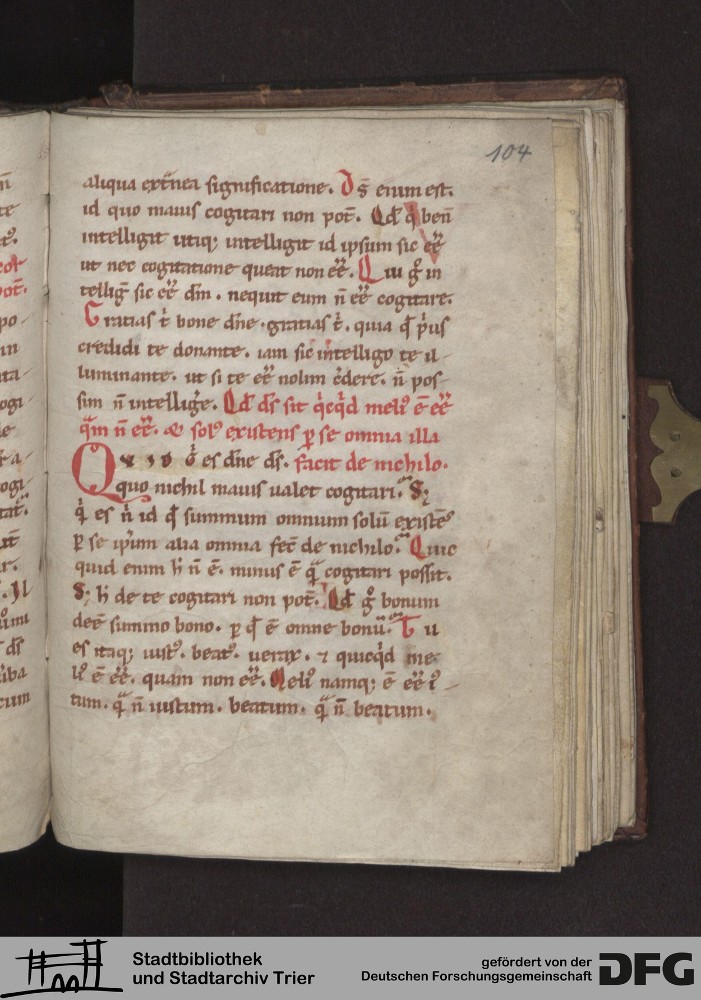 104
aliqua ext̄nea significatione. Ds̄ enim est.
id quo maius cogitari non pot̄. Qd̄ q̇ ben̄
intelligit utiq; intelligit id ipsum sic ēē
ut nec cogitatione queat non ēē. Qui gͦ in
telliḡ sic ēē dm̄. nequit eum n̄ ēē cogitare.
Gratias t̄ bone dn̄e. gratias t̄. quia q̄ ṗus
credidi te donante. iam sic intelligo te il-
luminante. ut si te ēē nolim c̄dere. n̄ pos-
sim n̄ intelliḡe. Qd̄ ds̄ sit q̇cq̇d meli᷒ ē ēē
q̄m n̄ ēē. & sol᷒ existens ꝑ se omnia illa
facit de nichilo.
es dn̄e ds̄.
quo nichil maius ualet cogitari. S;
q̇ es n̄ id q̄ summum omnium solū existēs
ꝑ se ip̄um alia omnia fec̄ de nichilo. Quic
quid enim h̄ n̄ ē. minus ē q̄ cogitari possit.
S; h̄ de te cogitari non pot̄. Qd̄ gͦ bonum
deē summo bono. ꝑ q̄ ē omne bonū. Tu
es itaq; iust᷒. beat᷒. uerax. ⁊ quicq̇d me-
li᷒ ē ēē. quam non ēē. Meli᷒ namq; ē ēē i᷒-
tum. q̄ n̄ iustum. beatum. q̄ n̄ beatum.
Stadtbibliothek
und Stadtarchiv Trier
gefördert von der
Deutschen Forschungsgemeinschaft
DFG